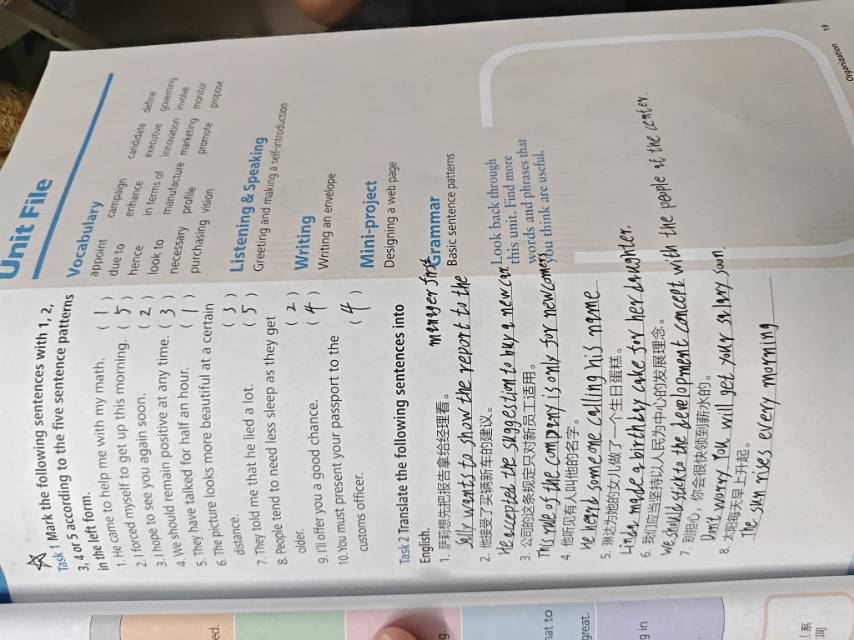 Unit File
Task 1 Mark the following sentences with 1, 2,
3, 4 or 5 according to the five sentence patterns
in the left form.
1. He came to help me with my math. ( 1 )
2. I forced myself to get up this morning. ( 5 )
3. I hope to see you again soon. ( 2 )
4. We should remain positive at any time. ( 3 )
5. They have talked for half an hour. ( 1 )
6. The picture looks more beautiful at a certain
distance. ( 3 )
7. They told me that he lied a lot. ( 5 )
8. People tend to need less sleep as they get
older. ( 2 )
9. I'll offer you a good chance. ( 4 )
10. You must present your passport to the
customs officer. ( 4 )
Task 2 Translate the following sentences into
English.
1. 萨莉想先把报告拿给经理看。
Sally wants to show the report to the
menyger first
2. 他接受了买辆新车的建议。
He accepted the suggestion to buy a new car.
3. 公司的这条规定只对新员工适用。
This rule of the company is only for newcomers
4. 他听见有人叫他的名字。
He heard someone calling his name
5. 琳达为她的女儿做了一个生日蛋糕。
Linda made a birthday cake for her daughter.
6. 我们应当坚持以人民为中心的发展理念。
We should stick to the development concert with the people at the center.
7. 别担心，你会很快领到薪水的。
Don't worry You will get your salary soon.
8. 太阳每天早上升起。
The sun rises every morning
Vocabulary
appoint campaign candidate define
due to enhance executive governing
hence in terms of innovation involve
look to manufacture marketing monitor
necessary profile promote propose
purchasing vision
Listening & Speaking
Greeting and making a self-introduction
Writing
Writing an envelope
Mini-project
Designing a web page
Grammar
Basic sentence patterns
Look back through
this unit. Find more
words and phrases that
you think are useful.
Organization 19
ed.
g.
hat to
great.
g in